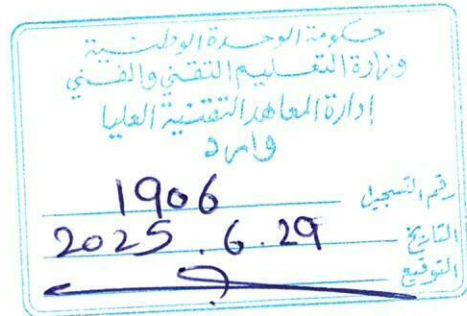 حكومة الوحدة الوطنية
وزارة التعليم التقني والفني
إدارة المعاهد التقنية العليا
وارد
رقم التسجيل 1906
التاريخ 2025.6.29
التوقيع